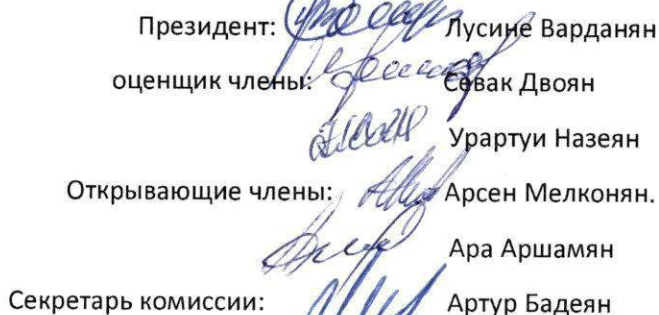 Президент: Лусине Варданян
оценщик члены: Севак Двоян
Урартуи Назеян
Открывающие члены: Арсен Мелконян.
Ара Аршамян
Секретарь комиссии: Артур Бадеян